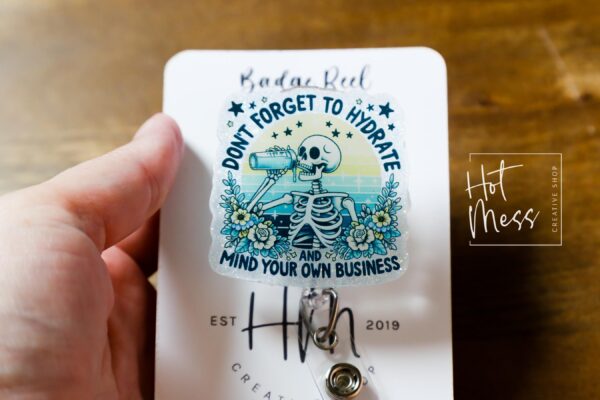 Badge Reel
DON'T FORGET TO HYDRATE
AND
MIND YOUR OWN BUSINESS
EST Hm 2019
CREATIVE
Hot
Mess
CREATIVE SHOP